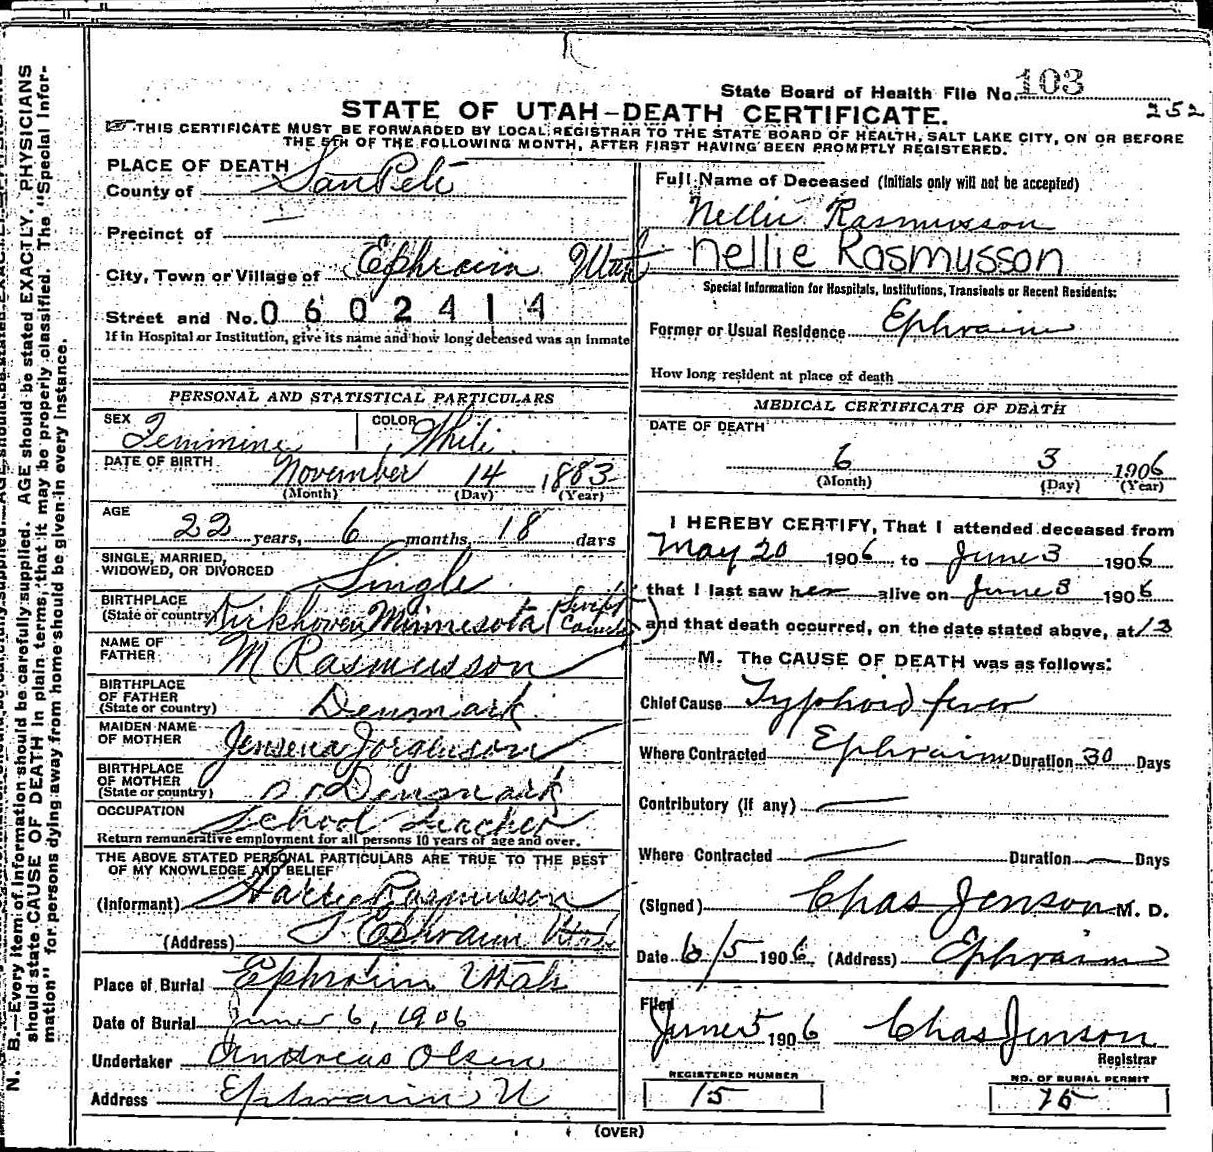 State Board of Health File No. 103
252
STATE OF UTAH-DEATH CERTIFICATE.
THIS CERTIFICATE MUST BE FORWARDED BY LOCAL REGISTRAR TO THE STATE BOARD OF HEALTH, SALT LAKE CITY, ON OR BEFORE
THE 5TH OF THE FOLLOWING MONTH, AFTER FIRST HAVING BEEN PROMPTLY REGISTERED.
PLACE OF DEATH
County of SanPete
Precinct of
City, Town or Village of Ephraim Utah
Street and No. 0602414
If in Hospital or Institution, give its name and how long deceased was an inmate
PERSONAL AND STATISTICAL PARTICULARS
SEX Feminine COLOR White
DATE OF BIRTH November 14 1883
(Month) (Day) (Year)
AGE 22 years, 6 months, 18 days
SINGLE, MARRIED,
WIDOWED, OR DIVORCED Single
BIRTHPLACE
(State or country) Kirkhoven Minnesota (Swift County)
NAME OF
FATHER M Rasmusson
BIRTHPLACE
OF FATHER
(State or country) Denmark
MAIDEN NAME
OF MOTHER Jensena Jorgenson
BIRTHPLACE
OF MOTHER
(State or country) Denmark
OCCUPATION School Teacher
Return remunerative employment for all persons 10 years of age and over.
THE ABOVE STATED PERSONAL PARTICULARS ARE TRUE TO THE BEST
OF MY KNOWLEDGE AND BELIEF
(Informant) Rasmusson
(Address) Ephraim Utah
Place of Burial Ephraim Utah
Date of Burial June 6, 1906
Undertaker Andreas Olsen
Address Ephraim U
Full Name of Deceased (Initials only will not be accepted)
Nellie Rasmusson
Nellie Rasmusson
Special Information for Hospitals, Institutions, Transients or Recent Residents:
Former or Usual Residence Ephraim
How long resident at place of death
MEDICAL CERTIFICATE OF DEATH
DATE OF DEATH
6 3 1906
(Month) (Day) (Year)
I HEREBY CERTIFY, That I attended deceased from
May 20 1906 to June 3 1906
that I last saw her alive on June 3 1906
and that death occurred, on the date stated above, at 13
M. The CAUSE OF DEATH was as follows:
Chief Cause Typhoid fever
Where Contracted Ephraim Duration 30 Days
Contributory (If any)
Where Contracted Duration Days
(Signed) Chas Jenson M. D.
Date 6/5 1906. (Address) Ephraim
Filed
June 5 1906 Chas Jenson
Registrar
REGISTERED NUMBER
15
NO. OF BURIAL PERMIT
75
(OVER)
N. B.—Every item of information should be carefully supplied. AGE should be stated EXACTLY. PHYSICIANS
should state CAUSE OF DEATH in plain terms, that it may be properly classified. The "Special Infor-
mation" for persons dying away from home should be given in every instance.